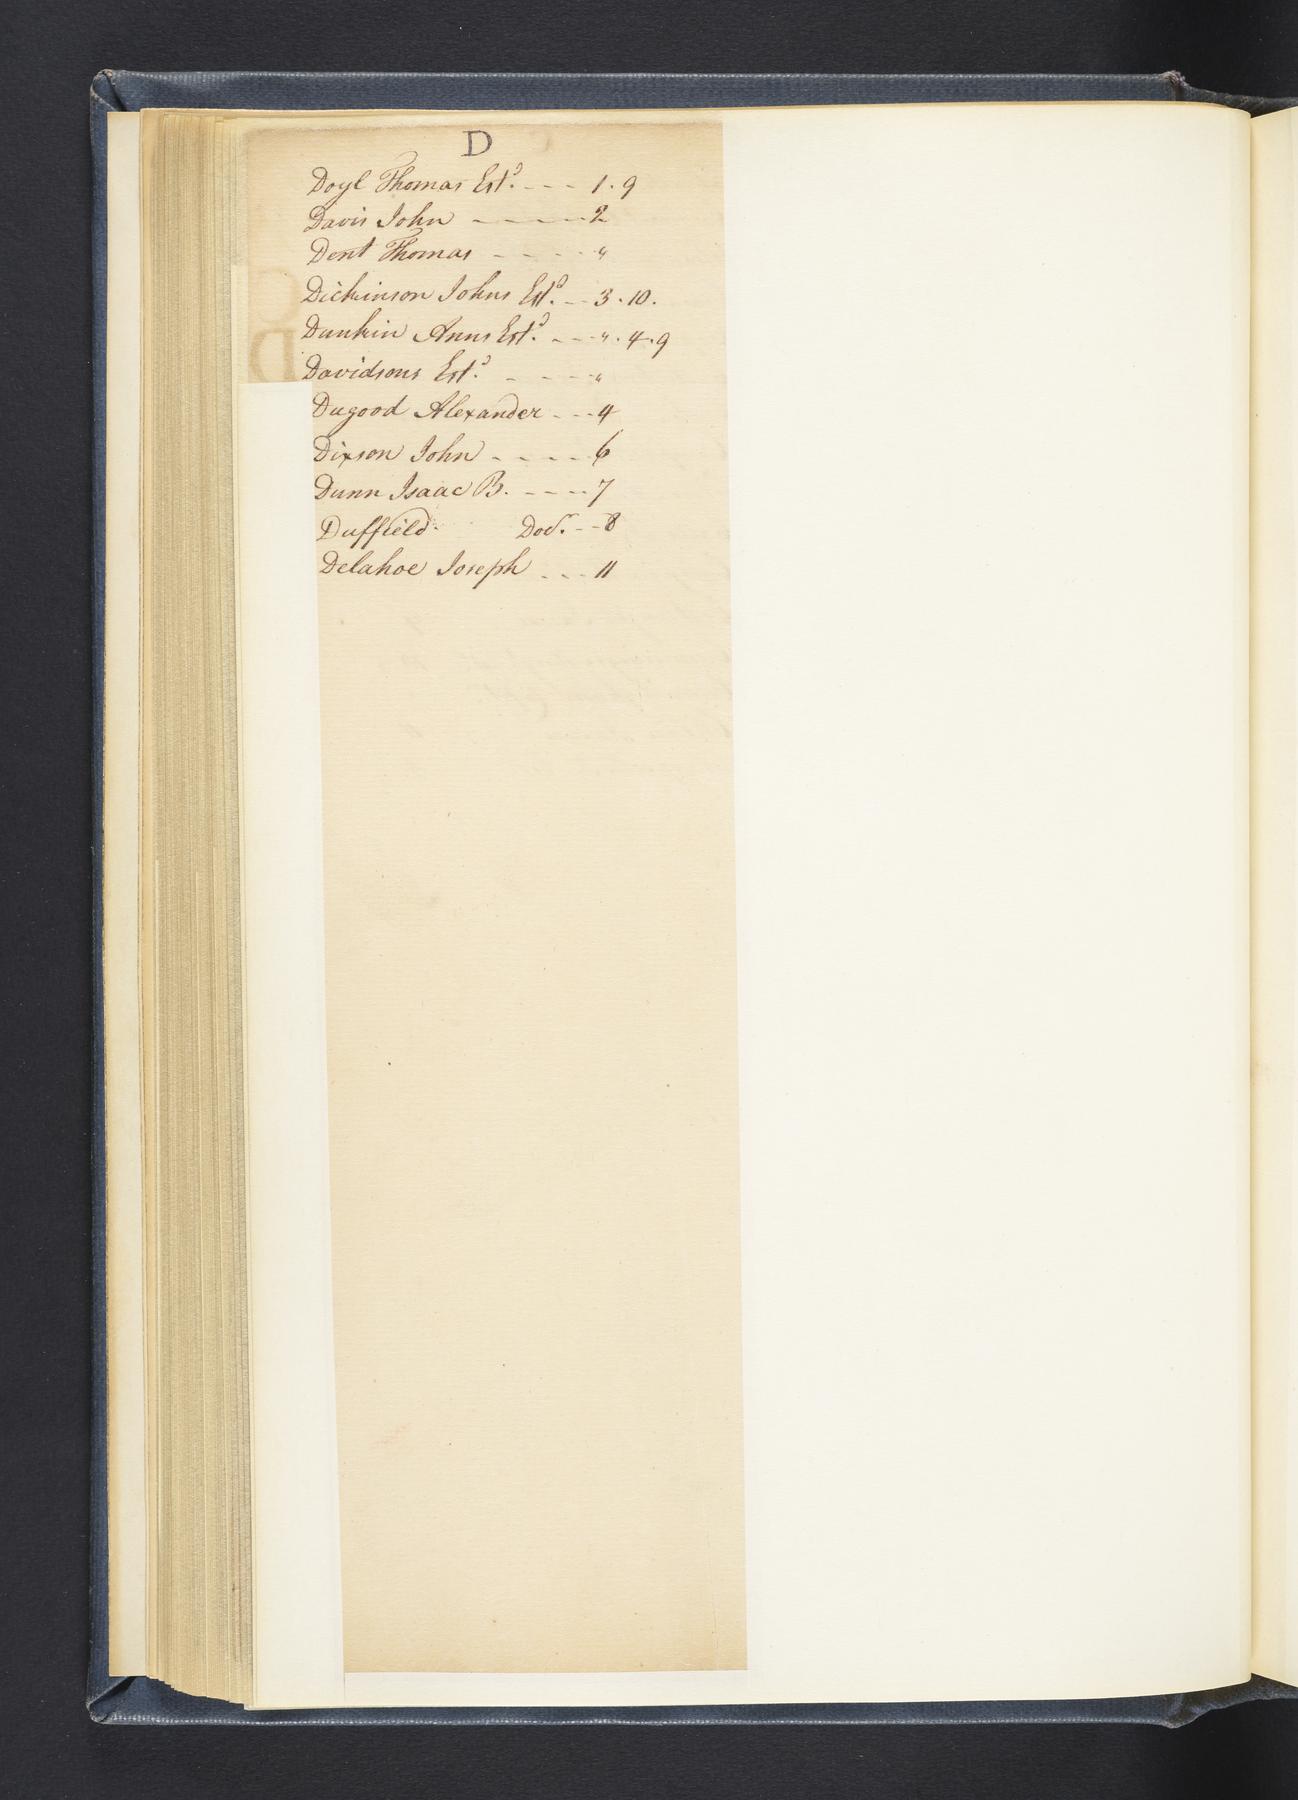 D
Doyl Thomas Est.ᵈ - - - 1 . 9
Davis John - - - - 2
Dent Thomas - - - - "
Dickinson Johns Est.ᵈ - - 3 . 10 .
Dunkin Anns Est.ᵈ - - - " . 4 . 9
Davidsons Est.ᵈ - - - - "
Dugood Alexander - - - 4
Dixson John - - - - - 6
Dunn Isaac B. - - - - 7
Duffield Doc.ʳ - - 8
Delahoe Joseph - - - 11
D